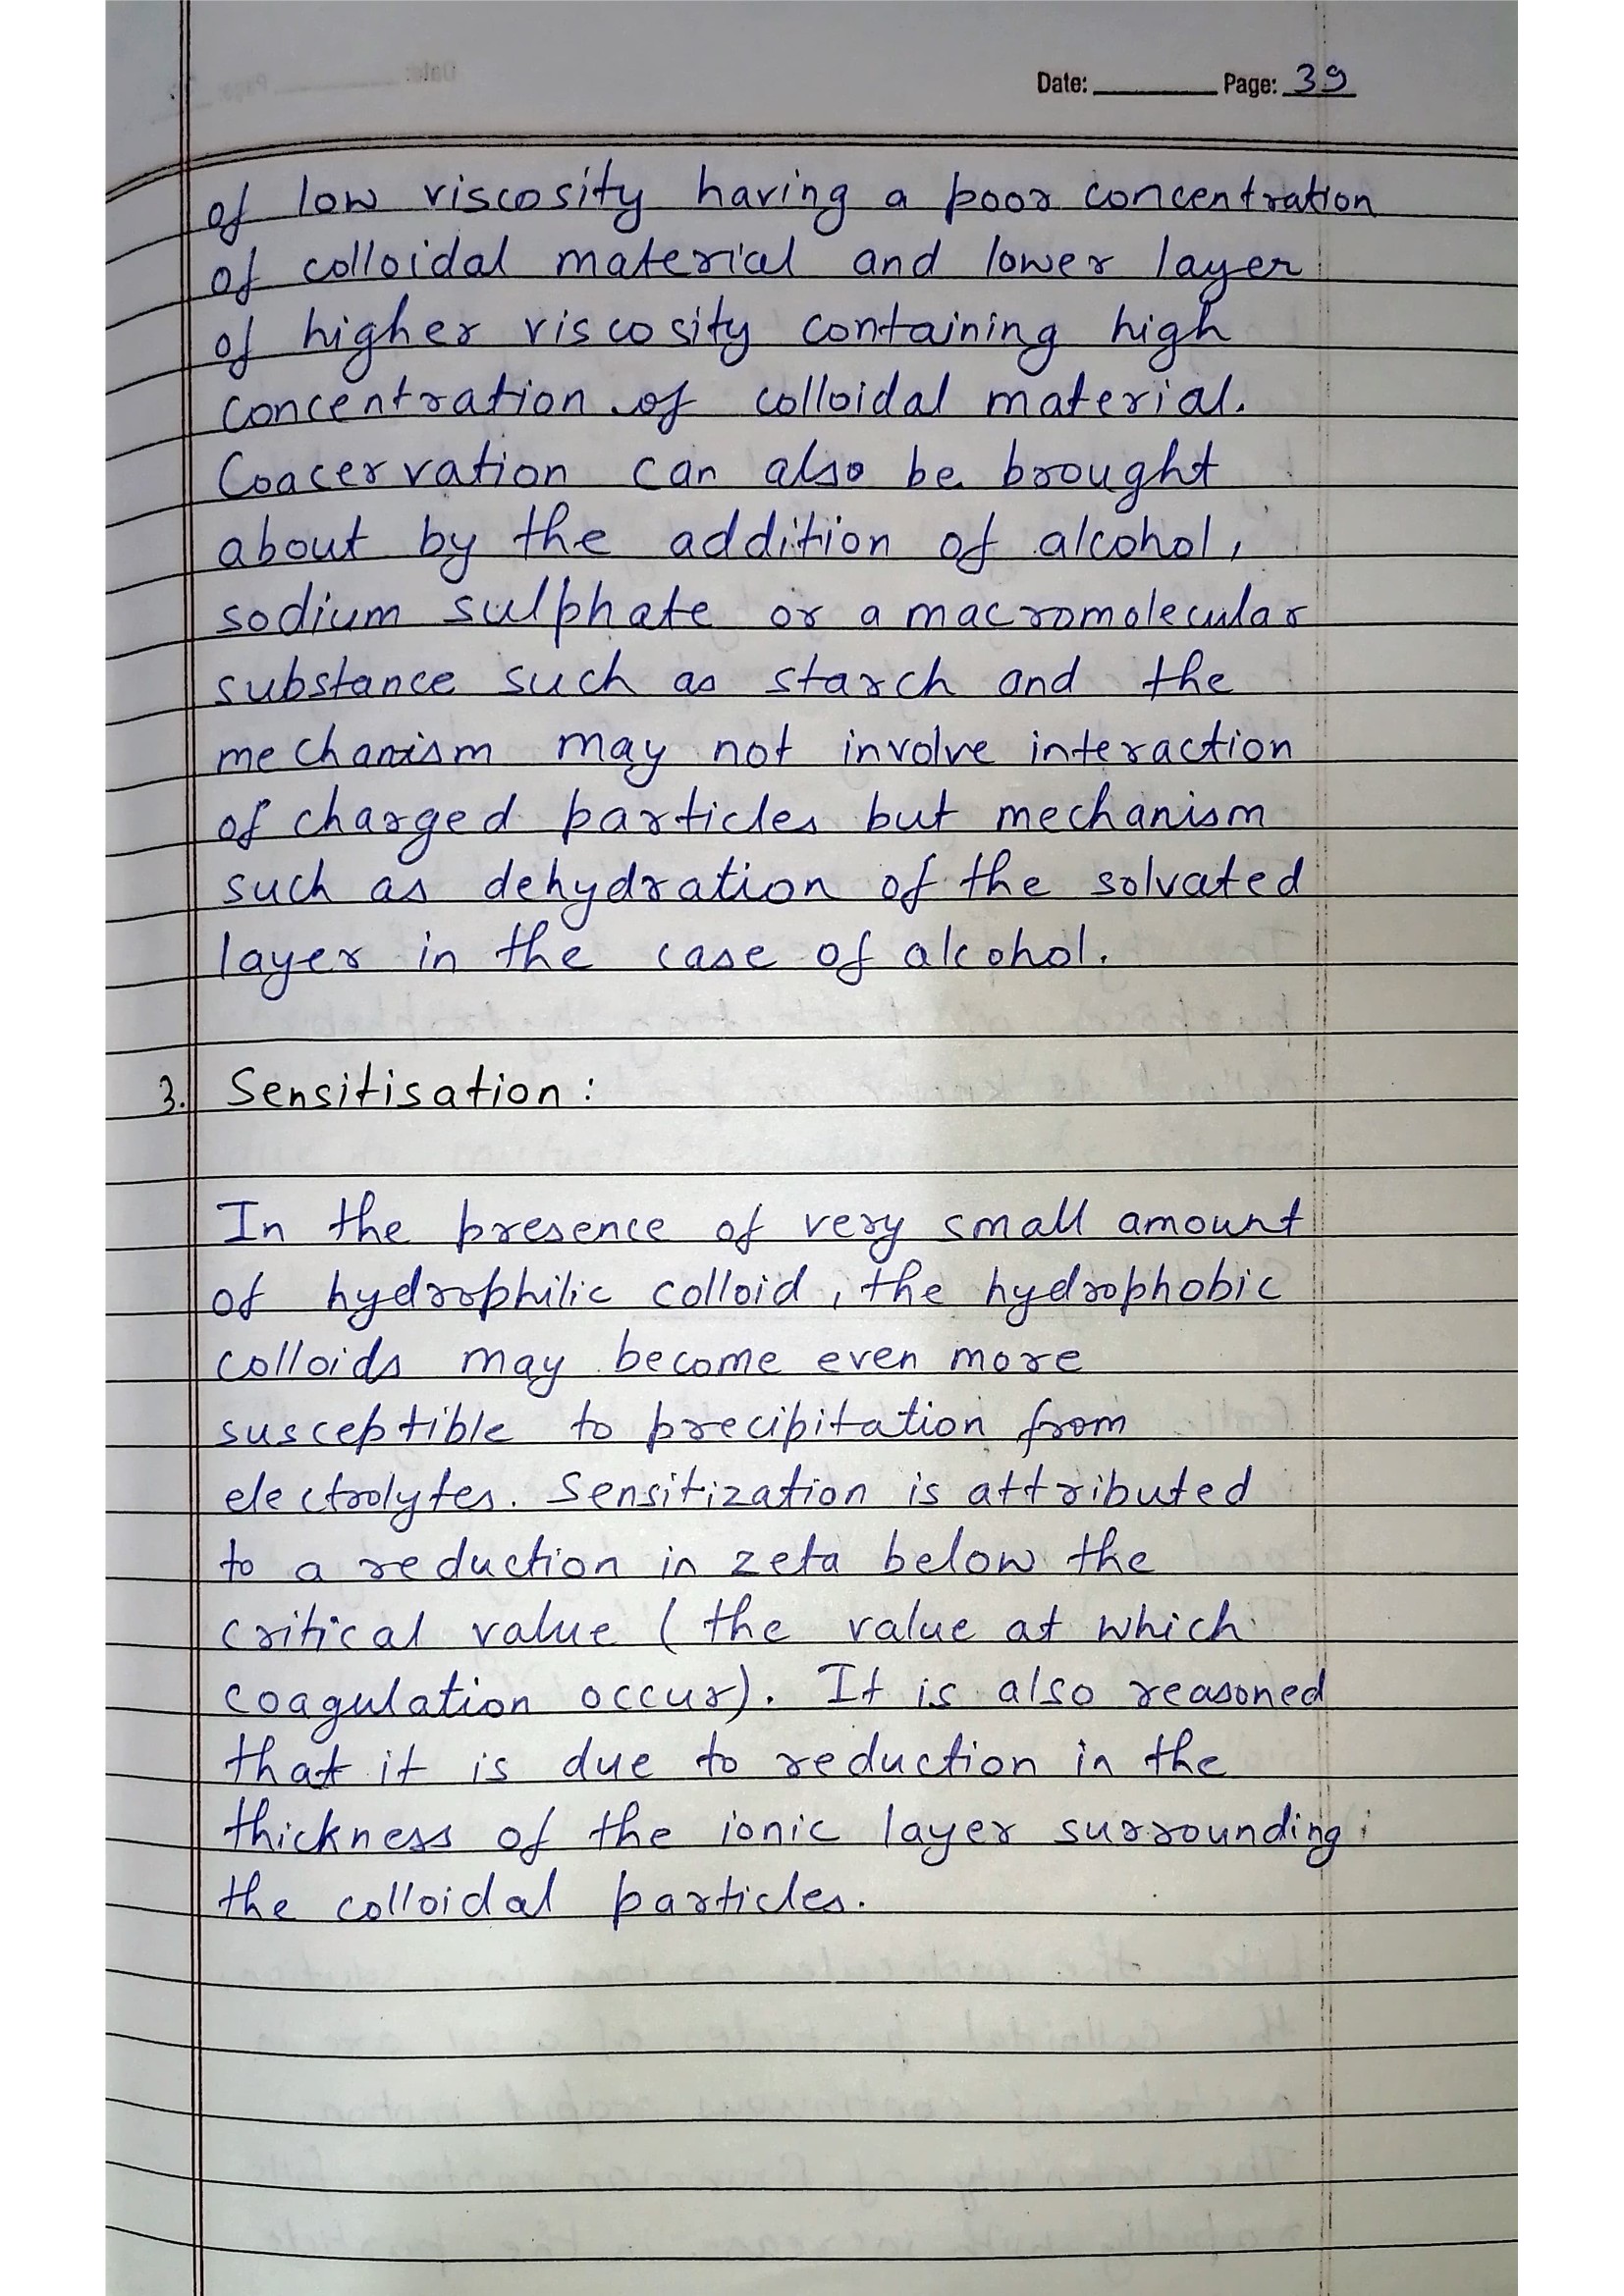 Date: ________ Page: 39
of low viscosity having a poor concentration
of colloidal material and lower layer
of higher viscosity containing high
concentration of colloidal material.
Coacervation can also be brought
about by the addition of alcohol,
sodium sulphate or a macromolecular
substance such as starch and the
mechanism may not involve interaction
of charged particles but mechanism
such as dehydration of the solvated
layer in the case of alcohol.
3. Sensitisation:
In the presence of very small amount
of hydrophilic colloid, the hydrophobic
colloids may become even more
susceptible to precipitation from
electrolytes. Sensitization is attributed
to a reduction in zeta below the
critical value (the value at which
coagulation occur). It is also reasoned
that it is due to reduction in the
thickness of the ionic layer surrounding
the colloidal particles.